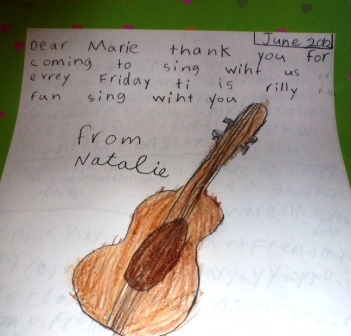 June
Dear Marie thank you for
coming to sing wiht us
evrey Friday ti is rilly
fun sing wiht you
from
Natalie